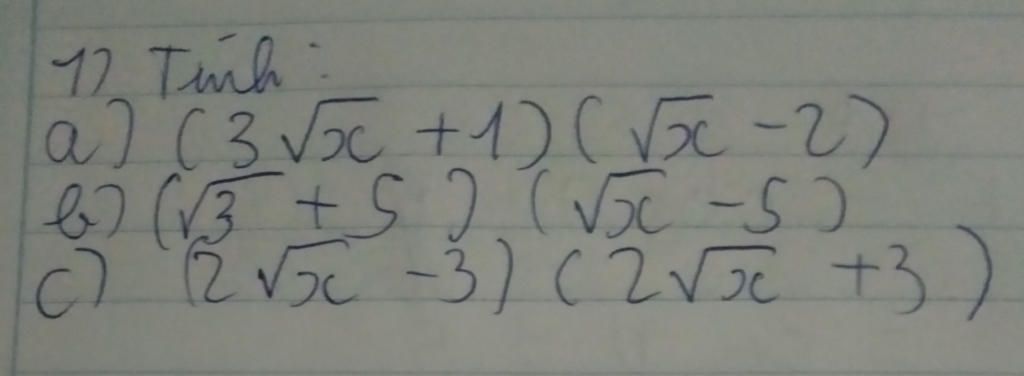 1) Tính:
a) (3√x + 1)(√x - 2)
b) (√3 + 5) (√x - 5)
c) (2√x - 3) (2√x + 3)